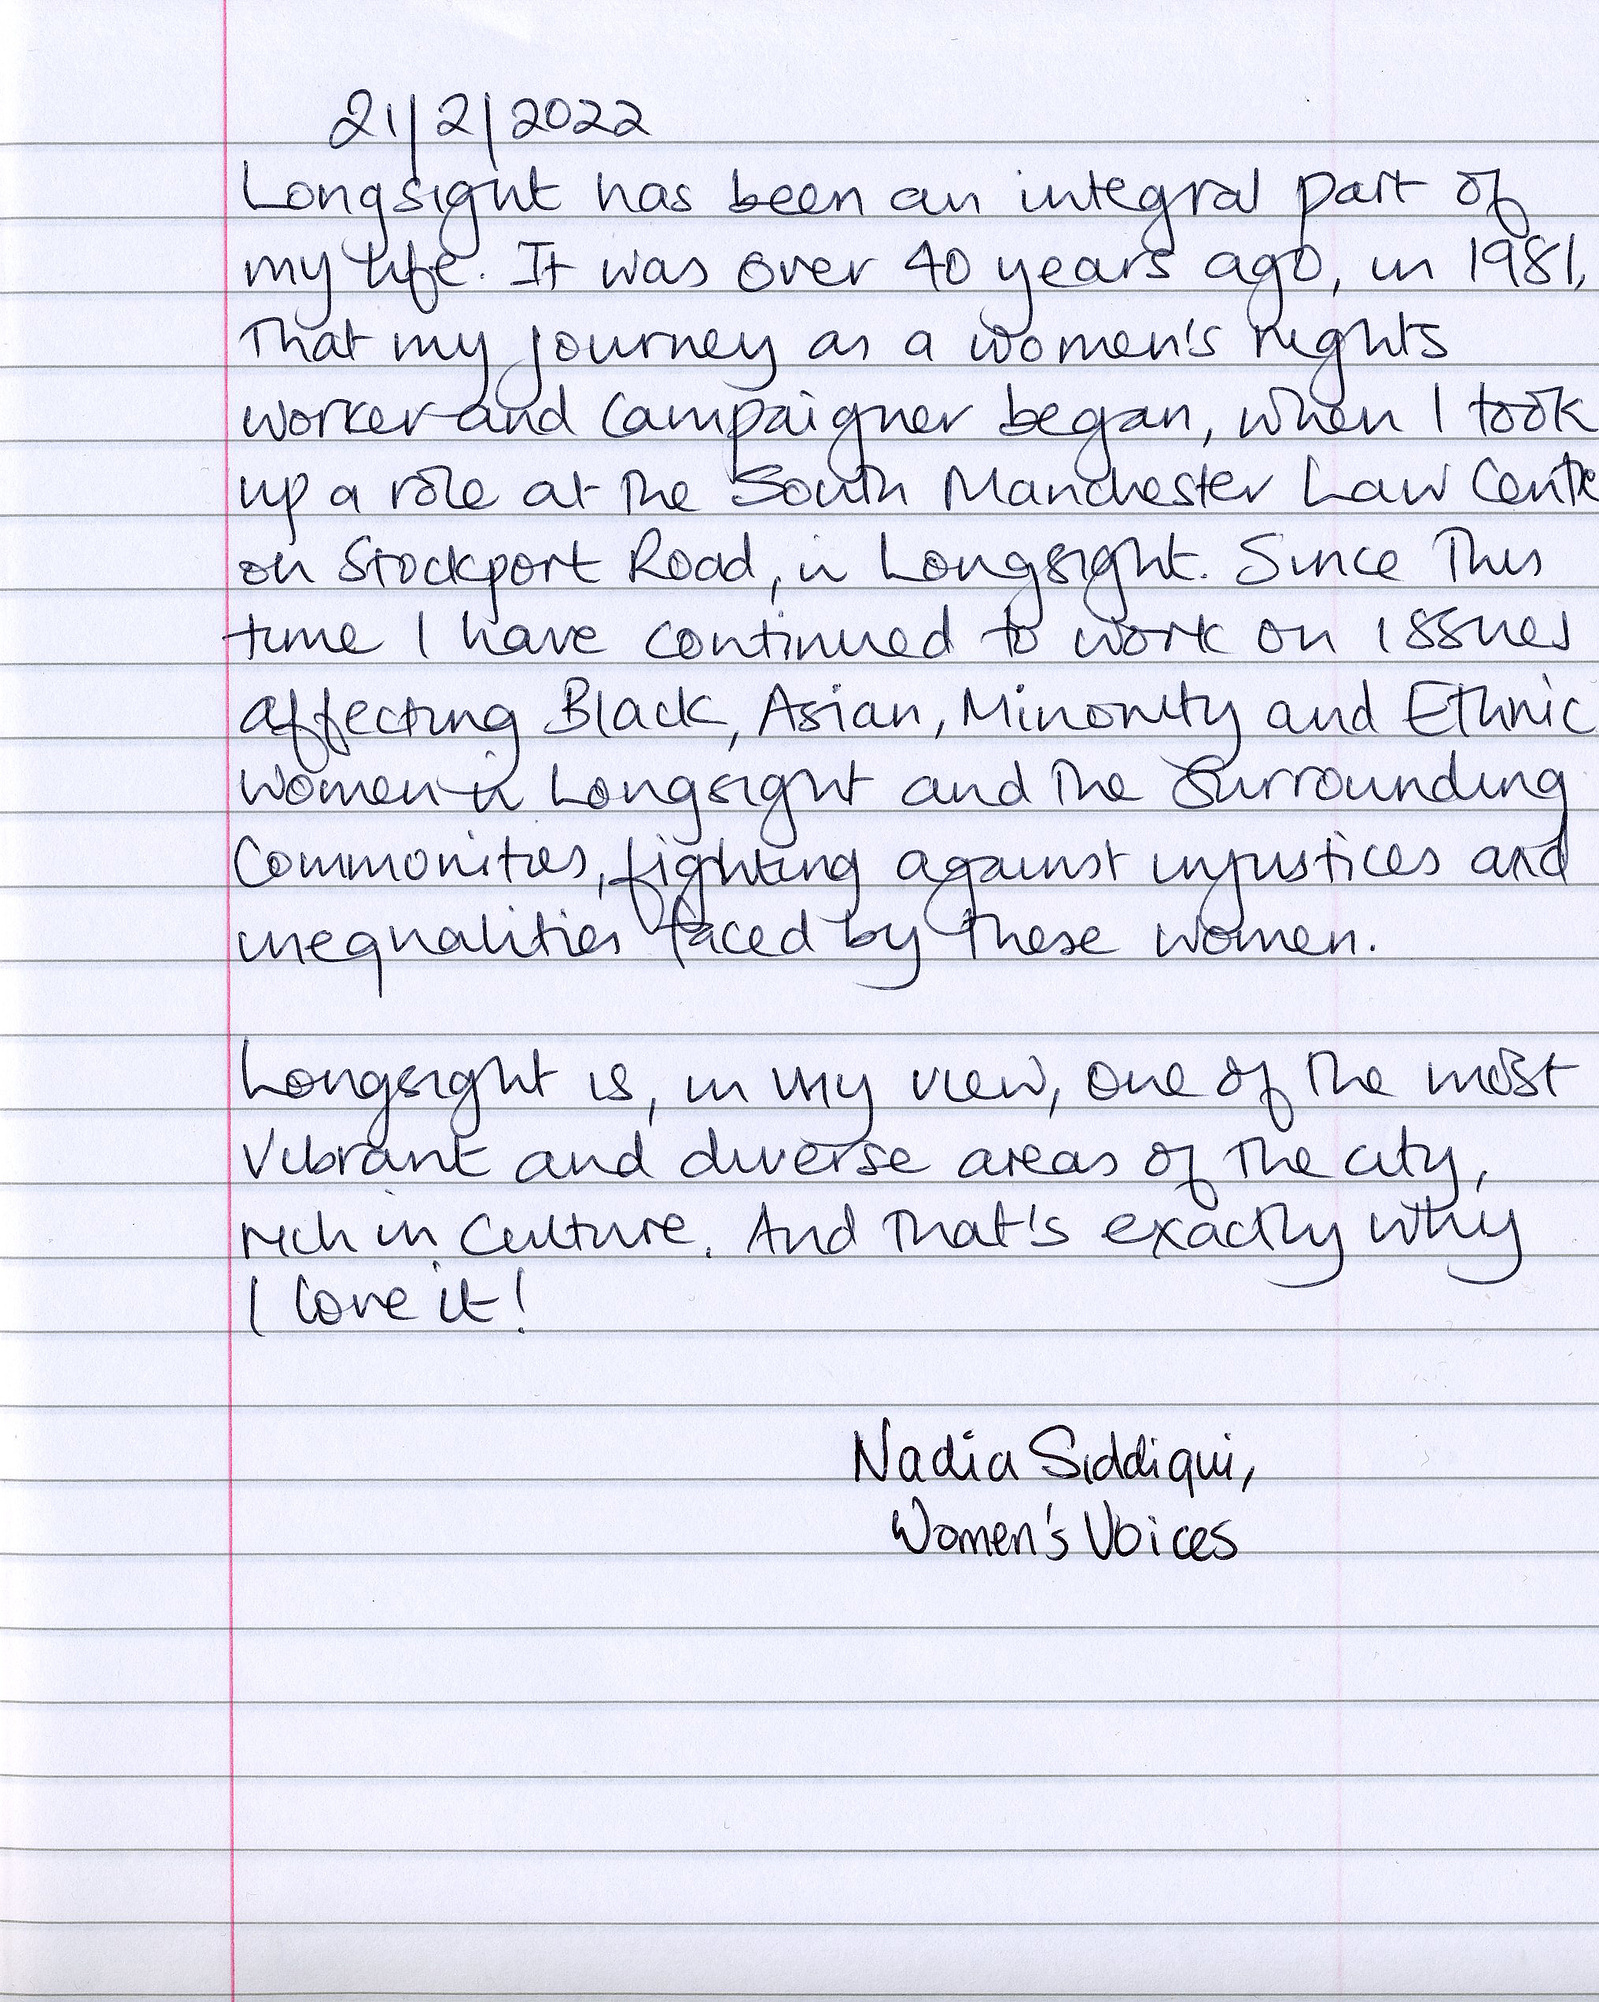 21/2/2022
Longsight has been an integral part of
my life. It was over 40 years ago, in 1981,
That my journey as a women's rights
worker and campaigner began, when I took
up a role at the South Manchester Law Cente
on Stockport Road, in Longsight. Since This
time I have continued to work on issues
affecting Black, Asian, Minority and Ethnic
women in Longsight and the Surrounding
Communities, fighting against injustices and
inequalities faced by these women.
Longsight is, in my view, one of the most
Vibrant and diverse areas of the city,
rich in culture. And that's exactly why
I love it!
Nadia Siddiqui,
Women's Voices